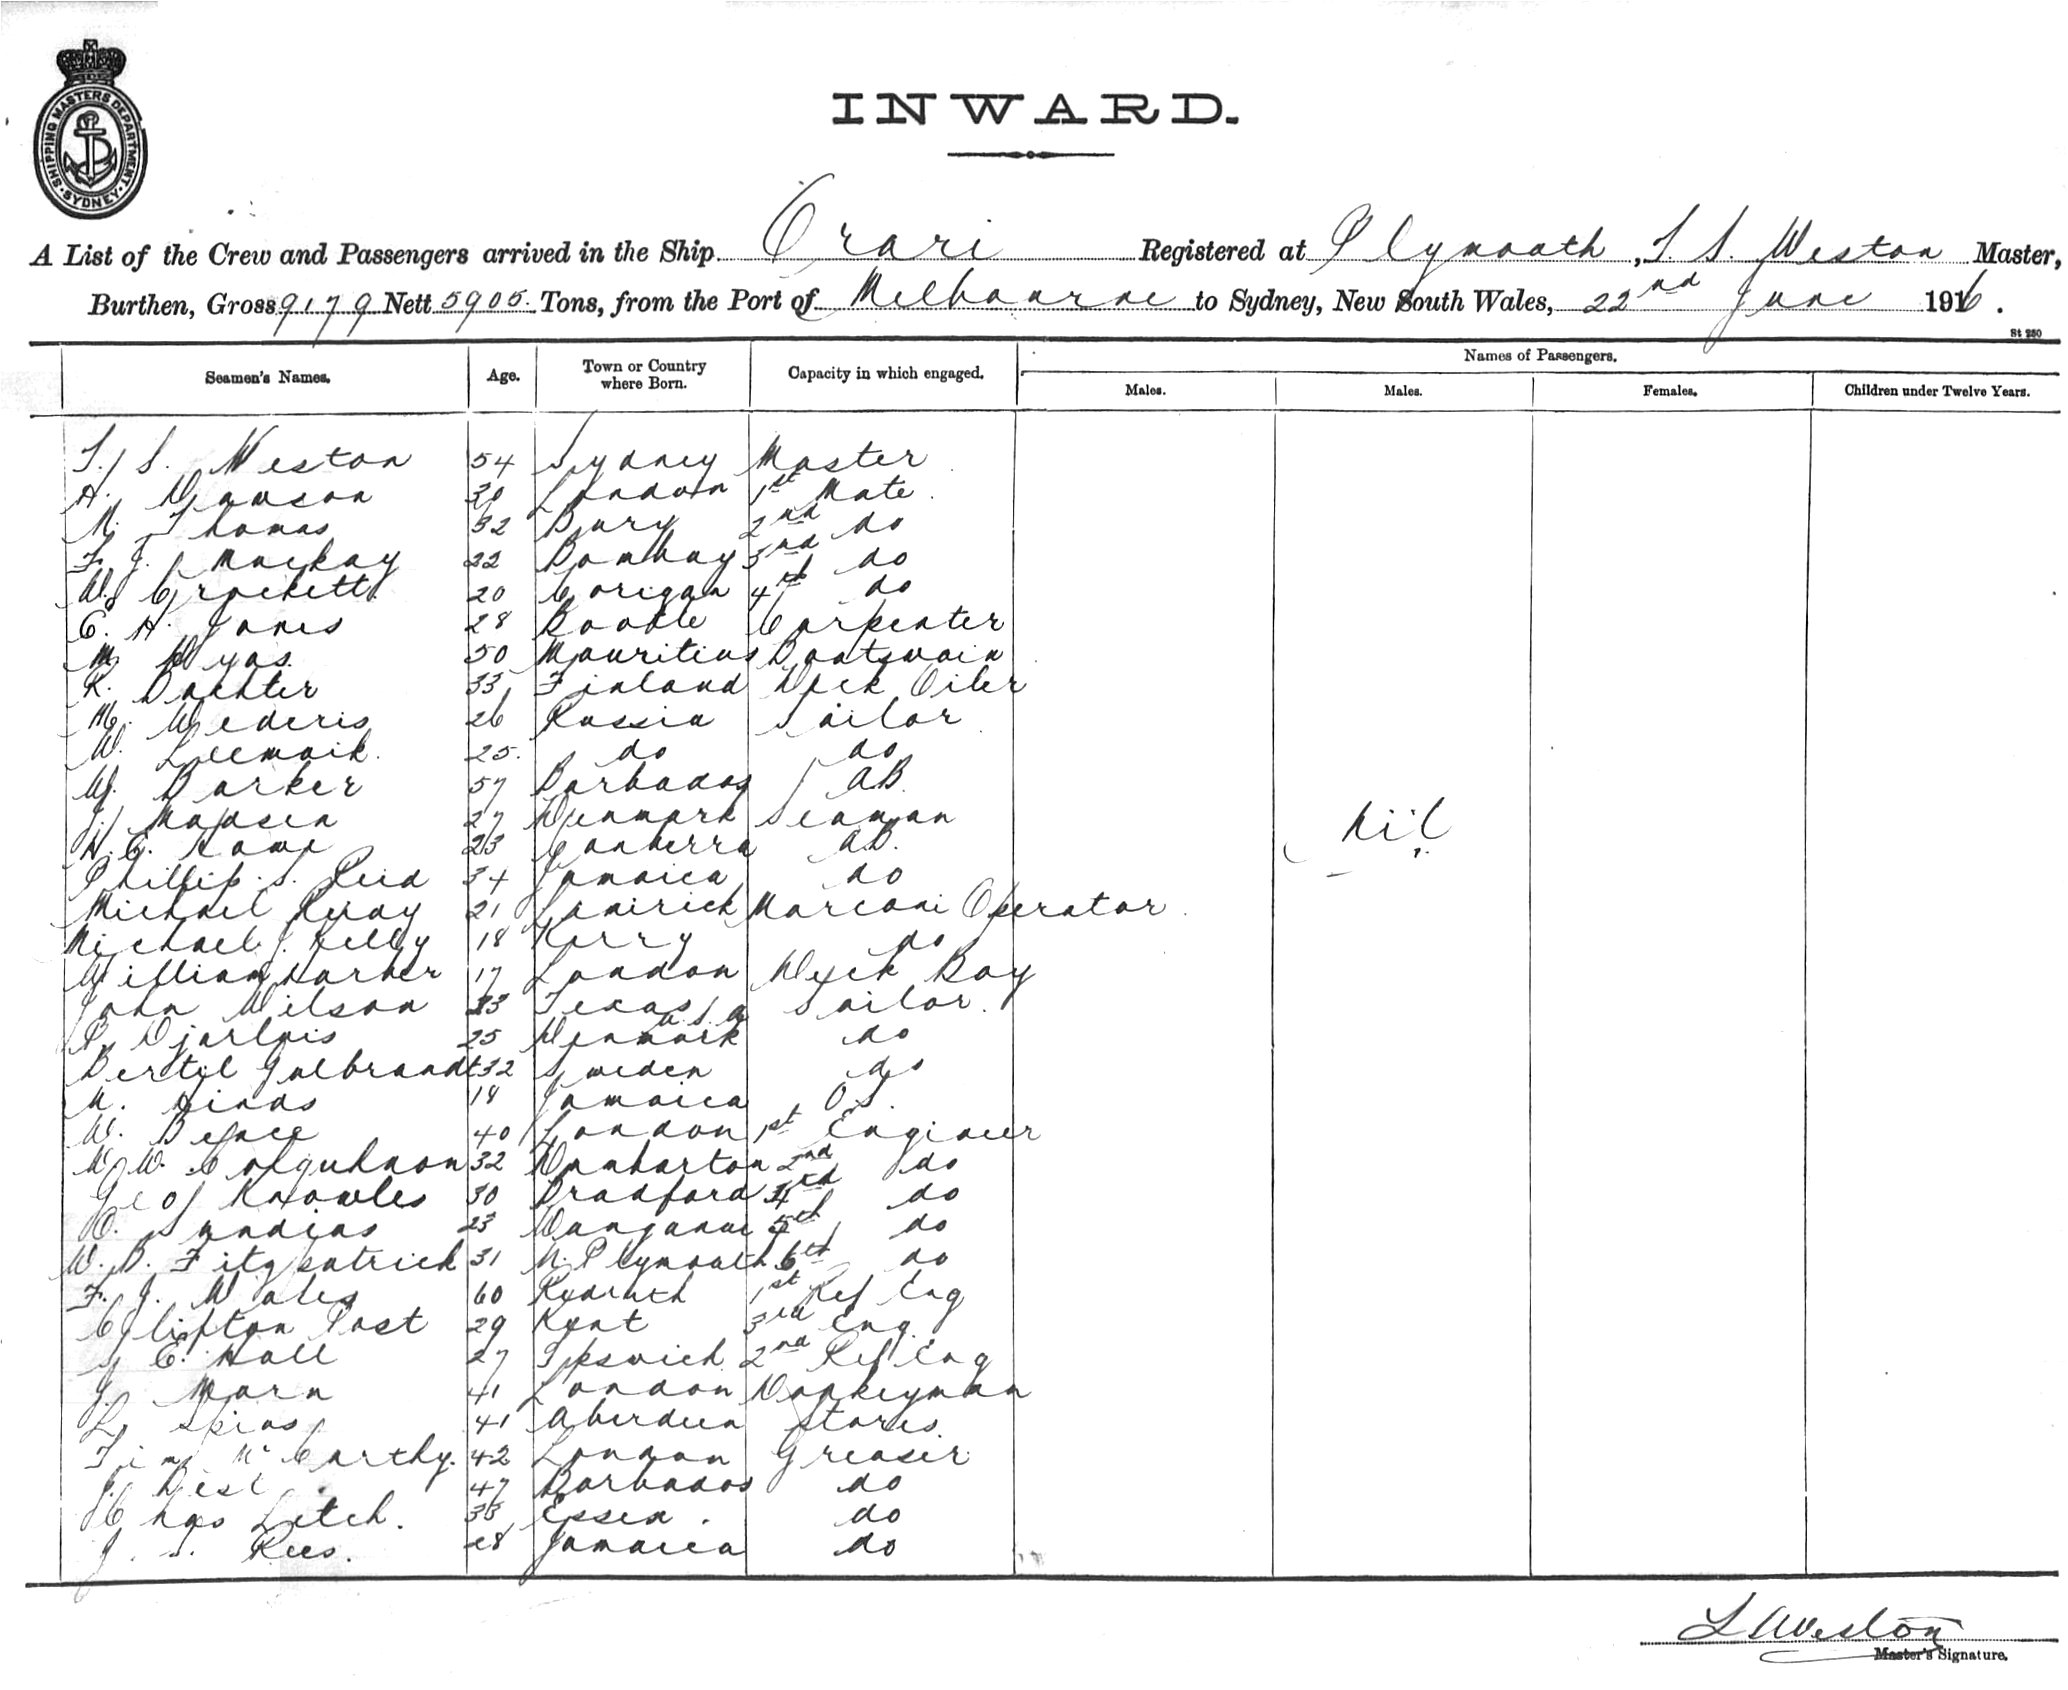 SHIPPING MASTERS DEPARTMENT. SYDNEY.
INWARD.
A List of the Crew and Passengers arrived in the Ship Orari Registered at Plymouth, S. Weston Master,
Burthen, Gross 9179 Nett 5905. Tons, from the Port of Melbourne to Sydney, New South Wales, 22nd June 1916.
St 250
Seamen's Names. Age. Town or Country where Born. Capacity in which engaged. Names of Passengers.
Males. Males. Females. Children under Twelve Years.
S. Weston 54 Sydney Master
H. Dawson 30 London 1st Mate
Thomas 32 Bury 2nd do
F. J. Mackay 22 Bombay 3rd do
W. Crockett 20 4th do
E. H. Jones 28 Bootle Carpenter
M. Dyas 50 Mauritius Boatswain
K. 33 Finland Deck Oiler
M. 26 Russia Sailor
W. 25. do do
W. Barker 57 Barbados AB
J. Madsen 27 Denmark Seaman
H. E. Rowe 23 Canberra AB.
nil
Phillip. S. Reid 34 Jamaica do
Michael 21 Limerick Marconi Operator
Michael J. Kelly 18 Kerry do
William 17 London Deck Boy
John Wilson 33 Texas U.S.A Sailor.
P. 25 Denmark do
Bertil Gulbrandt 32 Sweden do
Hinds 18 Jamaica O.S.
W. 40 London 1st Engineer
W. Colquhoon 32 Dumbarton 2nd do
Geo J Knowles 30 Bradford 4th do
23 Wanganui 5th do
W. B. Fitzpatrick 31 N. Plymouth 6th do
F. J. Wales 60 Redruth 1st Ref Eng
Clifton Post 29 Kent 3rd Eng.
J E. Hall 27 Ipswich 2nd Ref Eng
J. 41 London Donkeyman
L. 41 Aberdeen Stores.
Tim Mc Carthy. 42 London Greaser
J. 47 Barbados do
Chas Letch. 33 Essex. do
J. S. Rees. 28 Jamaica do
S Weston
Master's Signature.